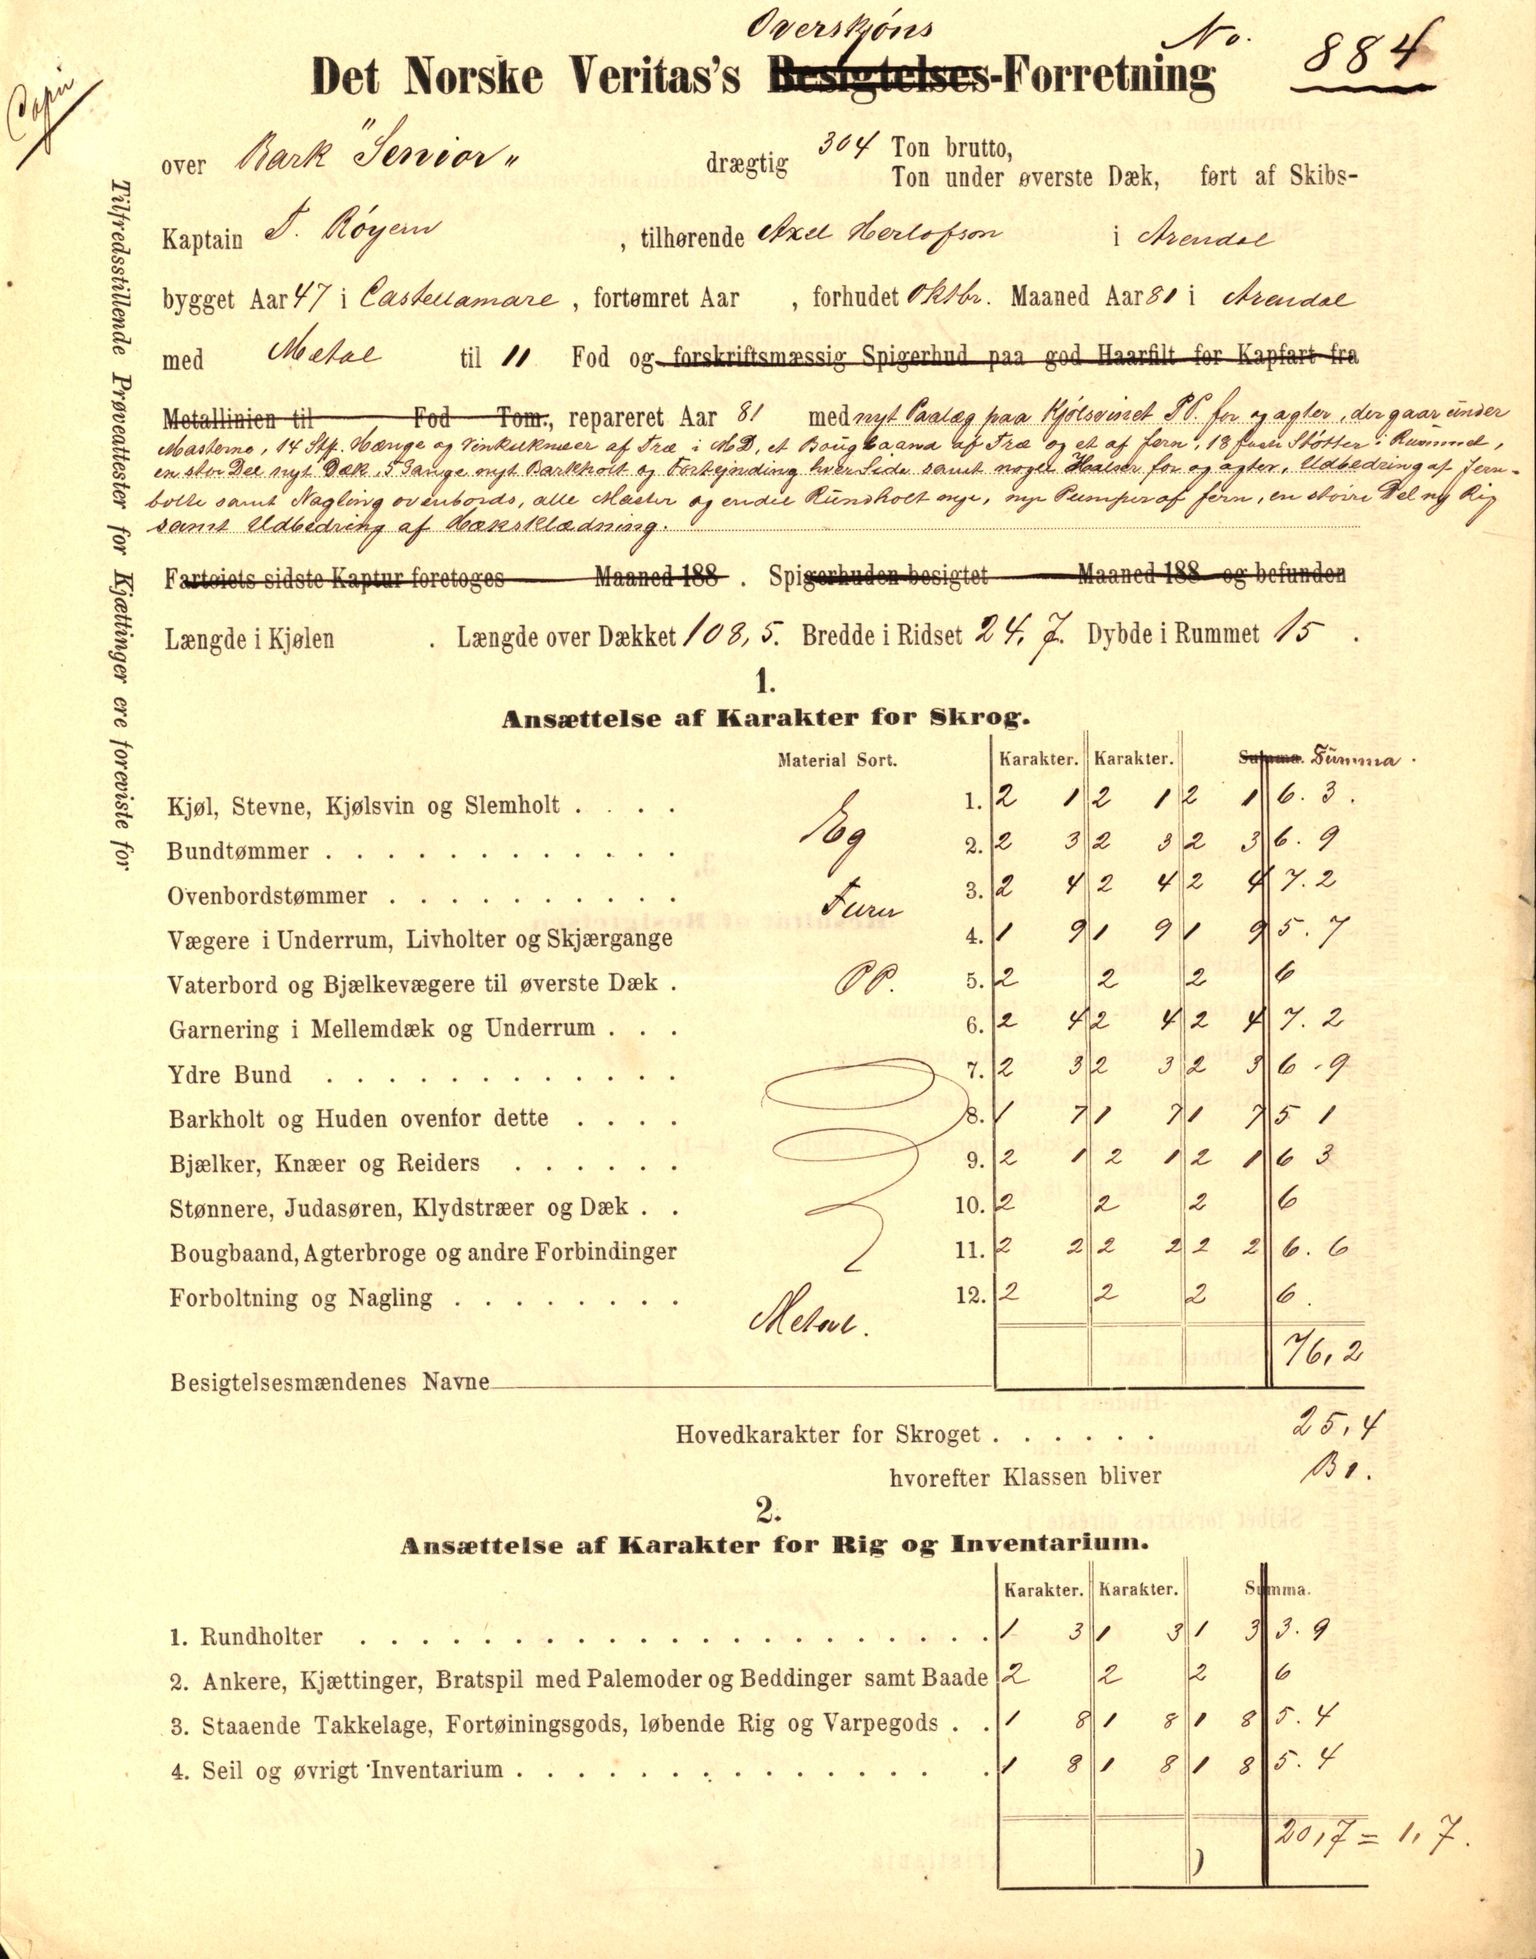 Overskjöns No. 884
Copie
Det Norske Veritas's Besigtelses-Forretning
over Bark "Senior" drægtig 304 Ton brutto,
Ton under øverste Dæk, ført af Skibs-
Kaptain T. Röyem, tilhørende Axel Herlofson i Arendal
bygget Aar 47 i Castellamare, fortømret Aar , forhudet Oktbr. Maaned Aar 81 i Arendal
med Metal til 11 Fod og forskriftsmæssig Spigerhud paa god Haarfilt for Kapfart fra
Metallinien til Fod Tom., repareret Aar 81 med nyt Paalæg paa Kjölsvinet P.P. for og agter, der gaar under
Masterne, 14 Stk. Hænge og Vinkelknæer af Træ i MD, et Bougbaand af Træ og et af Jern, 18 Støtter i Rummet,
en stor Del nyt Dæk, 5 Gange nyt Barkholt og Fortejnding hver Side samt nogle Halser for og agter, Udbedring af Jern-
bolte samt Nagling ovenbords, alle Master og endel Rundholt nye, nye Pumper af Jern, en større Del ny Rig
samt Udbedring af Hæksklædning.
Fartøiets sidste Kaptur foretoges Maaned 188 . Spigerhuden besigtet Maaned 188 og befunden
Længde i Kjølen . Længde over Dækket 108,5. Bredde i Ridset 24,7. Dybde i Rummet 15 .
Tilfredsstillende Prøveattester for Kjættinger ere foreviste for
1.
Ansættelse af Karakter for Skrog.
Material Sort. Karakter. Karakter. Summa. Summa.
Kjøl, Stevne, Kjølsvin og Slemholt . . . . 1. 2 1 2 1 2 1 6.3.
Eg
Bundtømmer . . . . . . . . . . . . 2. 2 3 2 3 2 3 6.9
Ovenbordstømmer . . . . . . . . . . Furu 3. 2 4 2 4 2 4 7.2
Vægere i Underrum, Livholter og Skjærgange 4. 1 9 1 9 1 9 5.7
Vaterbord og Bjælkevægere til øverste Dæk . PP. 5. 2 2 2 6
Garnering i Mellemdæk og Underrum . . . 6. 2 4 2 4 2 4 7.2
Ydre Bund . . . . . . . . . . . . 7. 2 3 2 3 2 3 6.9
Barkholt og Huden ovenfor dette . . . . 8. 1 7 1 7 1 7 5 1
Bjælker, Knæer og Reiders . . . . . . 9. 2 1 2 1 2 1 6 3
Stønnere, Judasøren, Klydstræer og Dæk . . 10. 2 2 2 6
Bougbaand, Agterbroge og andre Forbindinger 11. 2 2 2 2 2 2 6.6
Forboltning og Nagling . . . . . . . . 12. 2 2 2 6.
Metal.
76,2
Besigtelsesmændenes Navne
Hovedkarakter for Skroget . . . . . . 25,4
hvorefter Klassen bliver B1.
2.
Ansættelse af Karakter for Rig og Inventarium.
Karakter. Karakter. Summa.
1. Rundholter . . . . . . . . . . . . . . . . . . . . . 1 3 1 3 1 3 3.9
2. Ankere, Kjættinger, Bratspil med Palemoder og Beddinger samt Baade 2 2 2 6
3. Staaende Takkelage, Fortøiningsgods, løbende Rig og Varpegods . . 1 8 1 8 1 8 5.4
4. Seil og øvrigt Inventarium . . . . . . . . . . . . . . . 1 8 1 8 1 8 5.4
20,7 = 1,7.